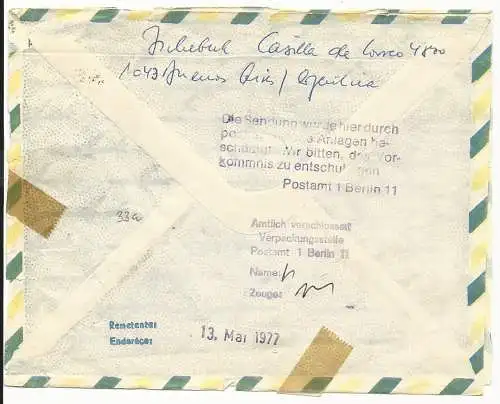 Casilla de Correo 4870
1043 Buenos Aires /
Die Sendung wurde hier durch
Anlagen be-
Wir bitten, das Vor-
kommnis zu
Postamt 1 Berlin 11
33a
Amtlich verschlossen
Verpackungsstelle
Postamt 1 Berlin 11
Name:
Zeuge:
Remetente:
Endereço:
13. Mai 1977